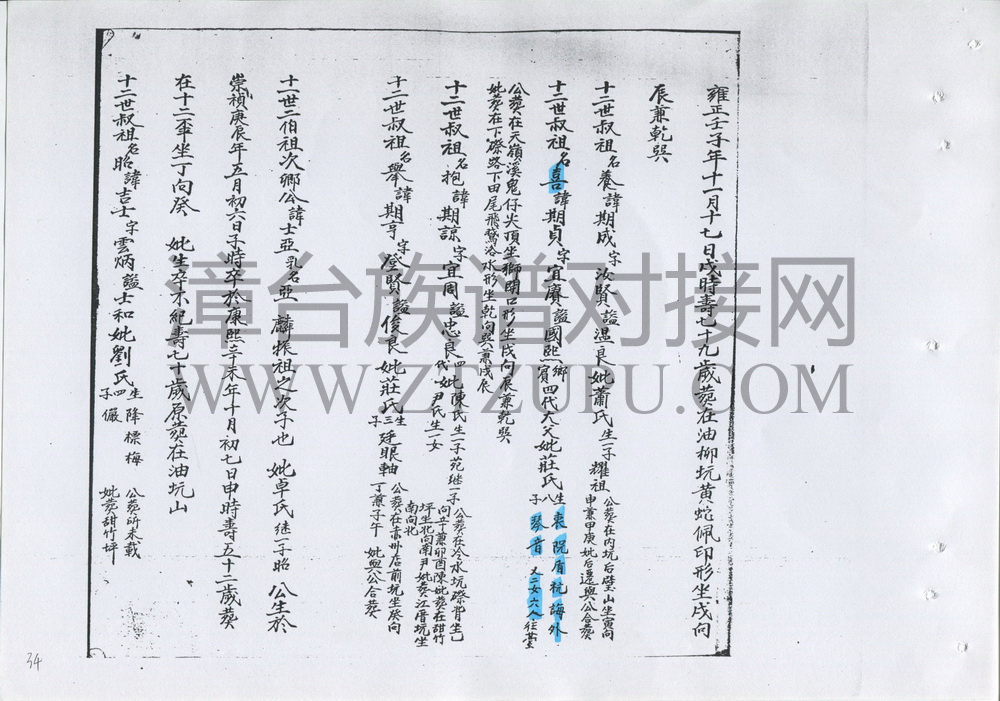 雍正壬子年十一月十七日戌時壽七十九歲葬在油柳坑黃蛇佩印形坐戌向
辰兼乾巽
十二世叔祖名養諱期成字汝賢謚溫良妣蕭氏生一子耀祖 公葬在內坑后壁山坐寅向
申兼甲庚妣后遷與公合葬
十二世叔祖名喜諱期貞字宜賡謚國熙鄉賓四代大父妣莊氏生八子 衷 院 盾 杭 誨 外
琴 音 又二女六人往台
公葬在天嶺溪鬼仔尖頂坐獅開口形坐戌向辰兼乾巽
妣葬在下際路下田尾飛鵞浴水形坐乾向巽兼戌辰
十二世叔祖名抱諱期諒字宜周謚忠良四代妣陳氏生一子苑继一子 尹氏生一女
公葬在冷水坑際背坐己
向 兼卯酉陳妣葬在甜竹
坪坐北向南尹妣葬江厝坑坐
南向北
十二世叔祖名舉諱期亨字登賢謚俊良妣莊氏生三子 廷 眼 軸 公葬在 店前坑坐癸向
丁兼子午 妣與公合葬
十二世二伯祖次鄉公諱士亞乳名亞 麟振祖之次子也 妣卓氏继一子昭 公生於
崇禎庚辰年五月初六日子時卒於康熙辛未年十月初七日申時壽五十二歲葬
在十二 坐丁向癸 妣生卒不紀壽七十歲原葬在油坑山
十二世叔祖名昭諱吉士字雲炳謚士和妣劉氏生四子 降 標 梅
儼 公葬所未載
妣葬甜竹坪
34
章台族谱对接网
WWW.ZTZUPU.COM